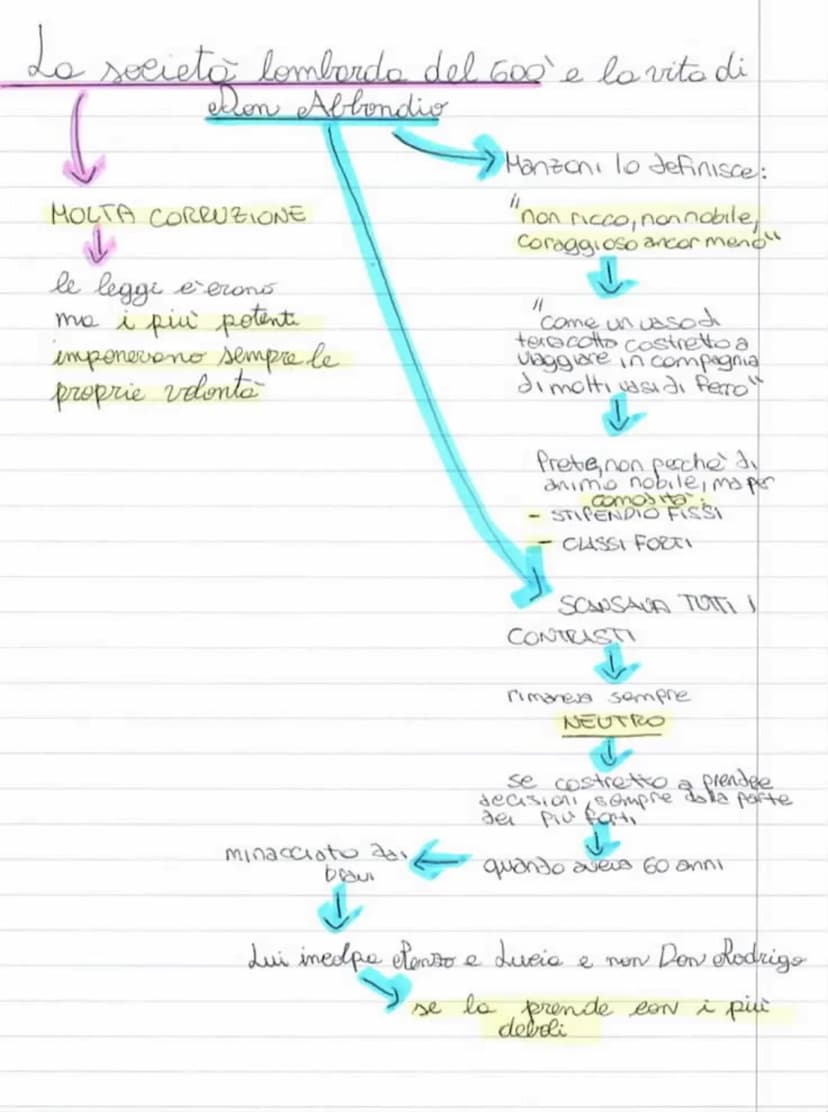 La società lombarda del 600' e la vita di
Don Abbondio
MOLTA CORRUZIONE
le leggi c'erano
ma i più potenti
imponevano sempre le
proprie volontà
Manzoni lo definisce:
"non ricco, non nobile,
coraggioso ancor meno"
"come un vaso di
terracotta costretto a
viaggiare in compagnia
di molti vasi di ferro"
Prete, non perchè di
animo nobile, ma per
comodità:
- STIPENDIO FISSI
- CLASSI FORTI
SCANSAVA TUTTI I
CONTRASTI
rimaneva sempre
NEUTRO
se costretto a prendee
decisioni, sempre dalla parte
dei più forti
quando aveva 60 anni
minacciato dai
bravi
Lui incolpa Renzo e Lucia e non Don Rodrigo
se la prende con i più
deboli